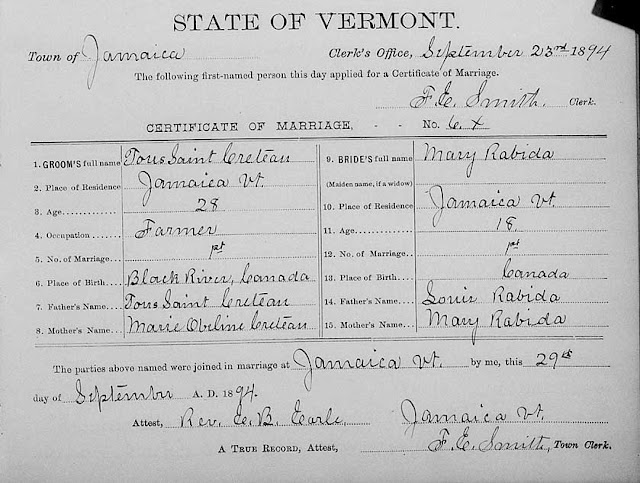 STATE OF VERMONT.
Town of Jamaica Clerk's Office, September 23rd 1894
The following first-named person this day applied for a Certificate of Marriage.
F. E. Smith. Clerk.
CERTIFICATE OF MARRIAGE, - - No. 6. X
1. GROOM'S full name Tous Saint Creteau
2. Place of Residence Jamaica Vt.
3. Age 28
4. Occupation Farmer
5. No. of Marriage 1st
6. Place of Birth Black River, Canada
7. Father's Name Tous Saint Creteau
8. Mother's Name Marie Obeline Creteau
9. BRIDE'S full name Mary Rabida
(Maiden name, if a widow)
10. Place of Residence Jamaica Vt.
11. Age 18.
12. No. of Marriage 1st
13. Place of Birth Canada
14. Father's Name Louis Rabida
15. Mother's Name Mary Rabida
The parties above named were joined in marriage at Jamaica Vt. by me, this 29th
day of September A. D. 1894.
Attest, Rev. E. B. Earle, Jamaica Vt.
A TRUE RECORD, Attest, F. E. Smith, Town Clerk.